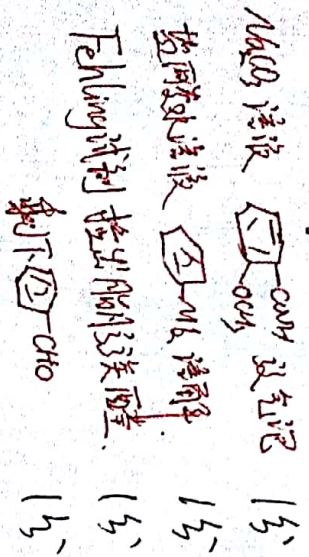 Na₂CO₃ 溶液 COOH OCH₃ 放气泡 1分
溶液 NH₂ 溶解 1分
Fehling试剂 检出脂肪族醛. 1分
剩下 CHO 1分